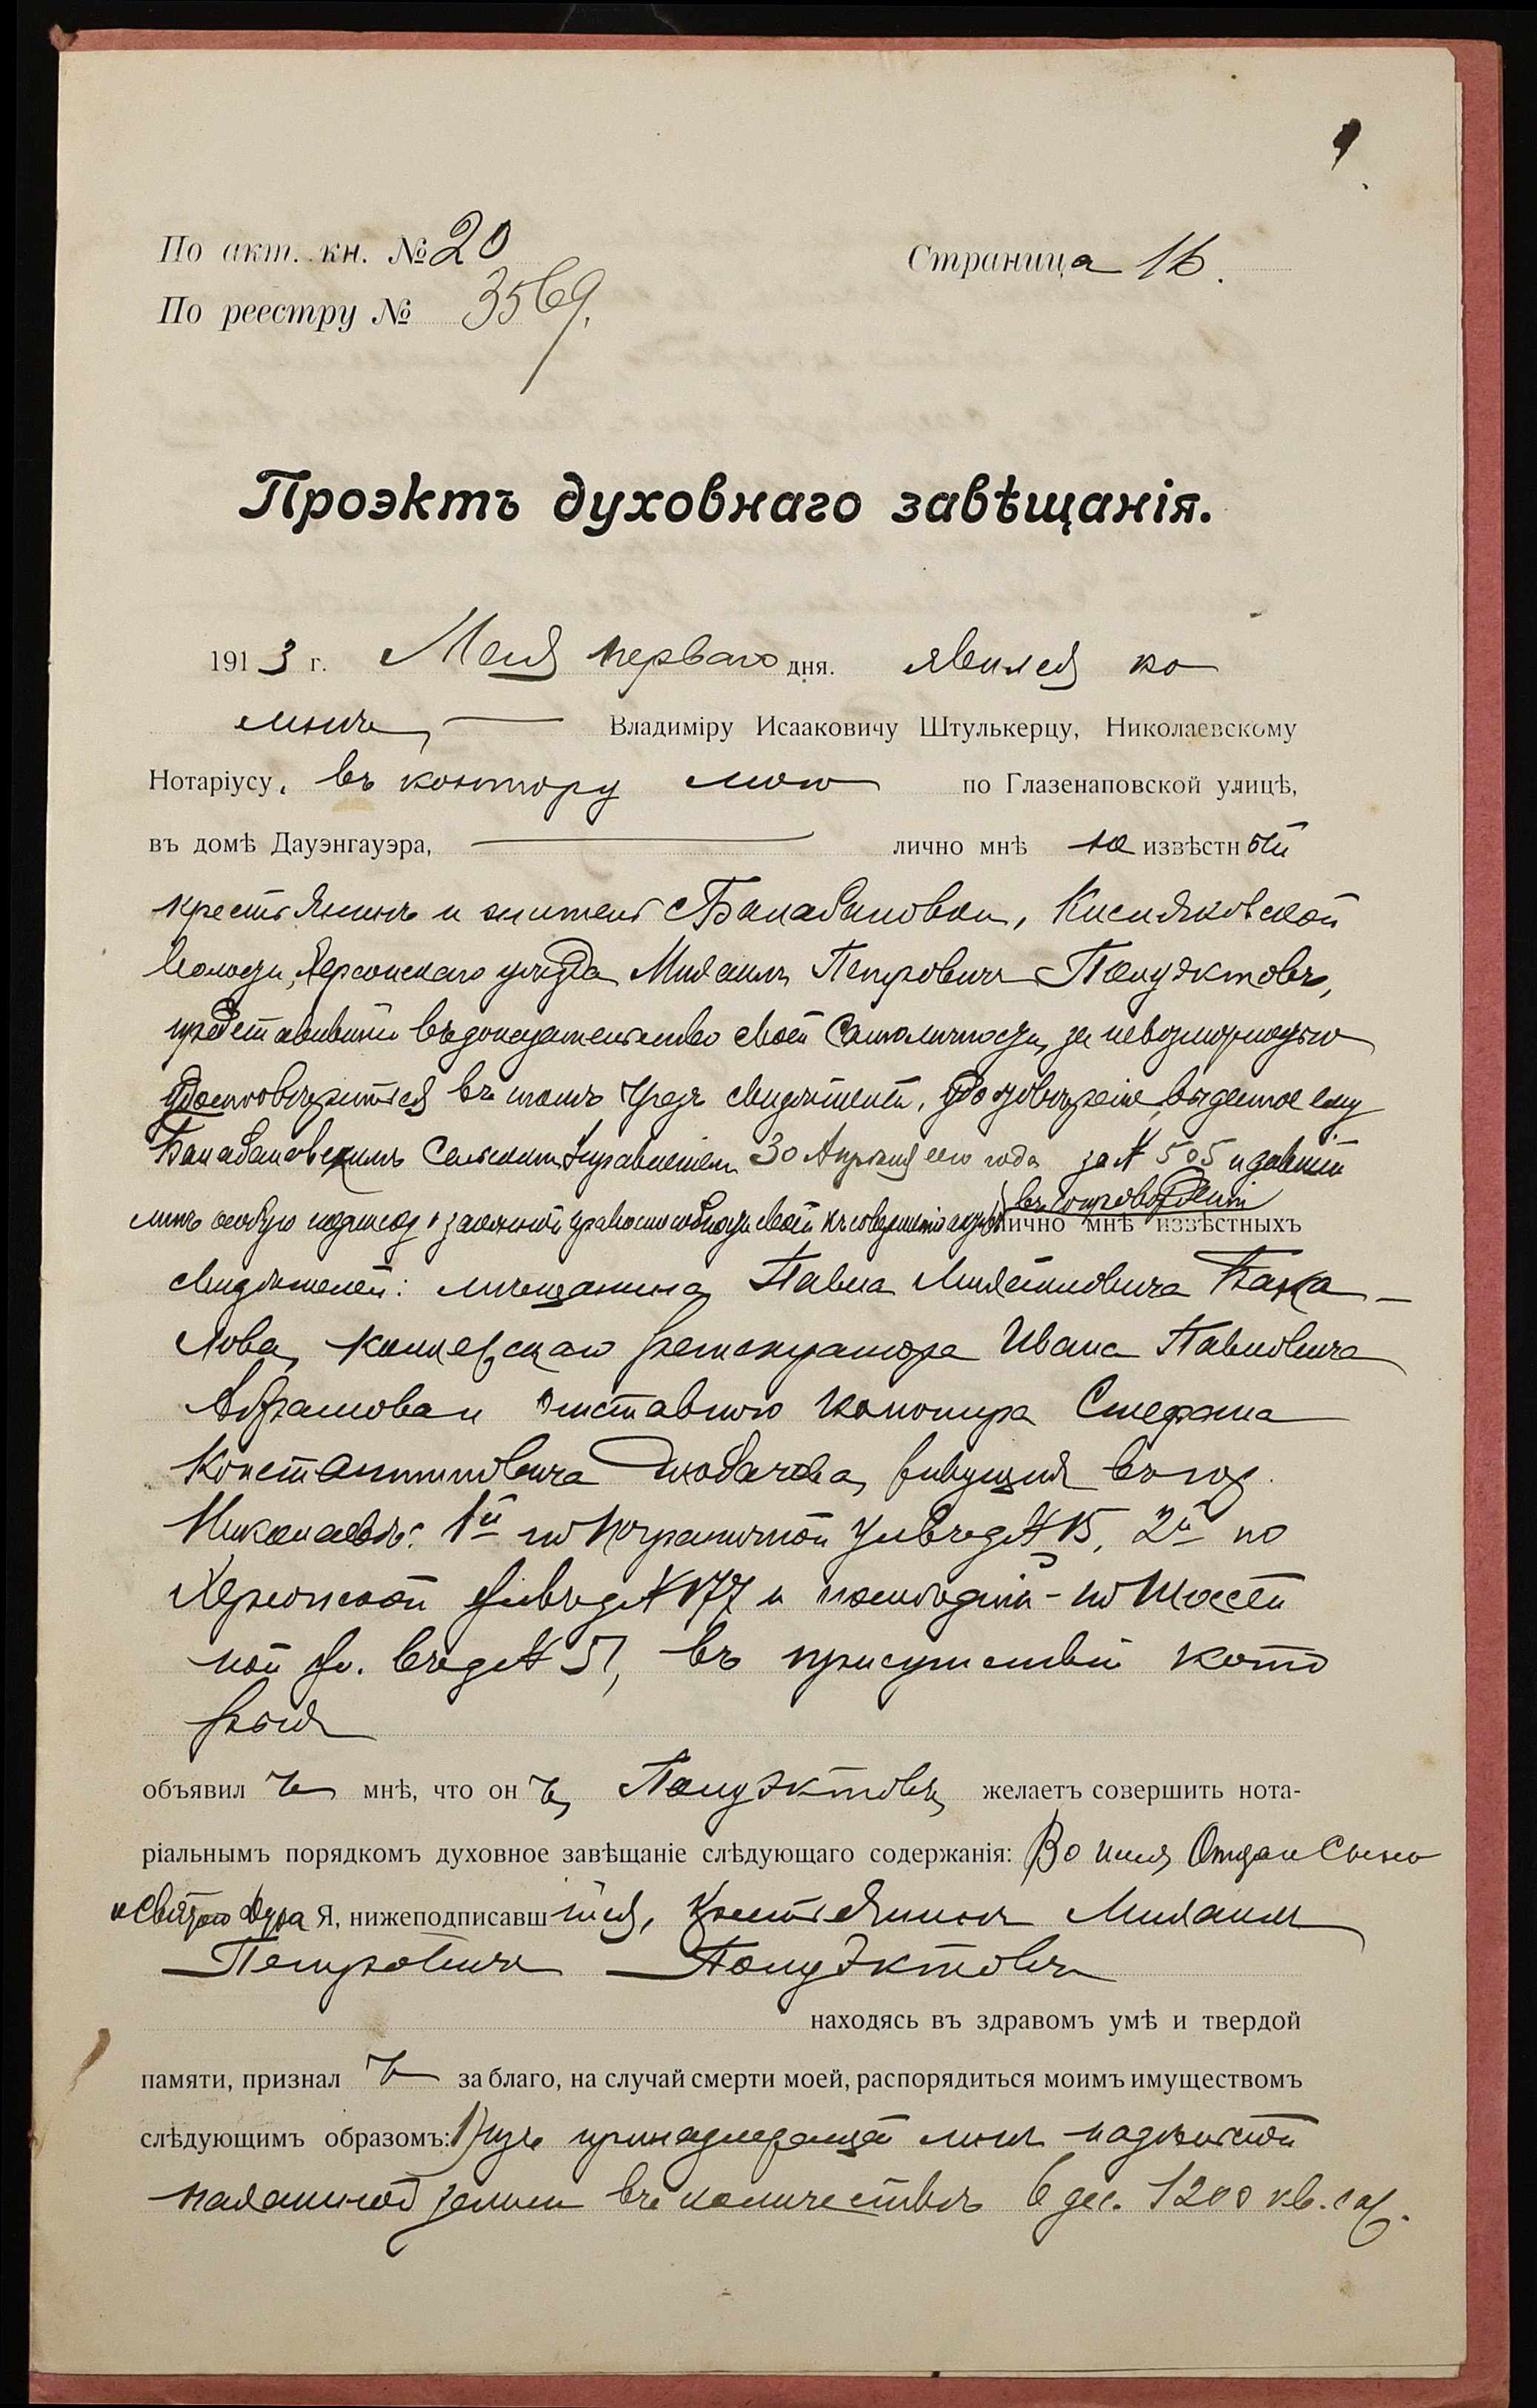 По акт. кн. № 20
Страница 16.
По реестру № 3569.
Проэктъ духовнаго завѣщанія.
1913 г. Мая перваго дня. явился ко
мнѣ, Владиміру Исааковичу Штулькерцу, Николаевскому
Нотаріусу, въ контору мою по Глазенаповской улицѣ,
въ домѣ Дауэнгауэра, лично мнѣ не извѣстный
крестьянинъ и житель с. Балабановки, Кисляковской
волости, Херсонскаго уѣзда Михаилъ Петровичъ Полуэктовъ,
представившій въ доказательство своей самоличности, за невозможностью
удостовѣриться въ томъ чрезъ свидѣтелей, удостовѣреніе, выданное ему
Балабановскимъ Сельскимъ Управленіемъ 30 Апрѣля сего года за № 505 и давшій
мнѣ особую подписку о законной правоспособности своей къ совершенію актовъ въ сопровожденіи лично мнѣ извѣстныхъ
свидѣтелей: мѣщанина Павла Михайловича Бака-
лова, коллежскаго регистратора Ивана Павловича
Абрамова и отставного Стефана
Константиновича живущихъ въ гор.
Николаевѣ: 1й по Пограничной ул. въ д. № 15, 2й по
Херсонской ул. въ д. № 177 и послѣдній - по
ной ул. въ д. № 51, въ присутствіи кото
рыхъ
объявилъ мнѣ, что онъ, Полуэктовъ, желаетъ совершить нота-
ріальнымъ порядкомъ духовное завѣщаніе слѣдующаго содержанія: Во имя Отца и Сына
и Святого Духа Я, нижеподписавшійся, крестьянинъ Михаилъ
Петровичъ Полуэктовъ
находясь въ здравомъ умѣ и твердой
памяти, призналъ за благо, на случай смерти моей, распорядиться моимъ имуществомъ
слѣдующимъ образомъ: 1) изъ принадлежащей мнѣ надѣльной
пахатной земли въ количествѣ 6 дес. 1200 кв. саж.